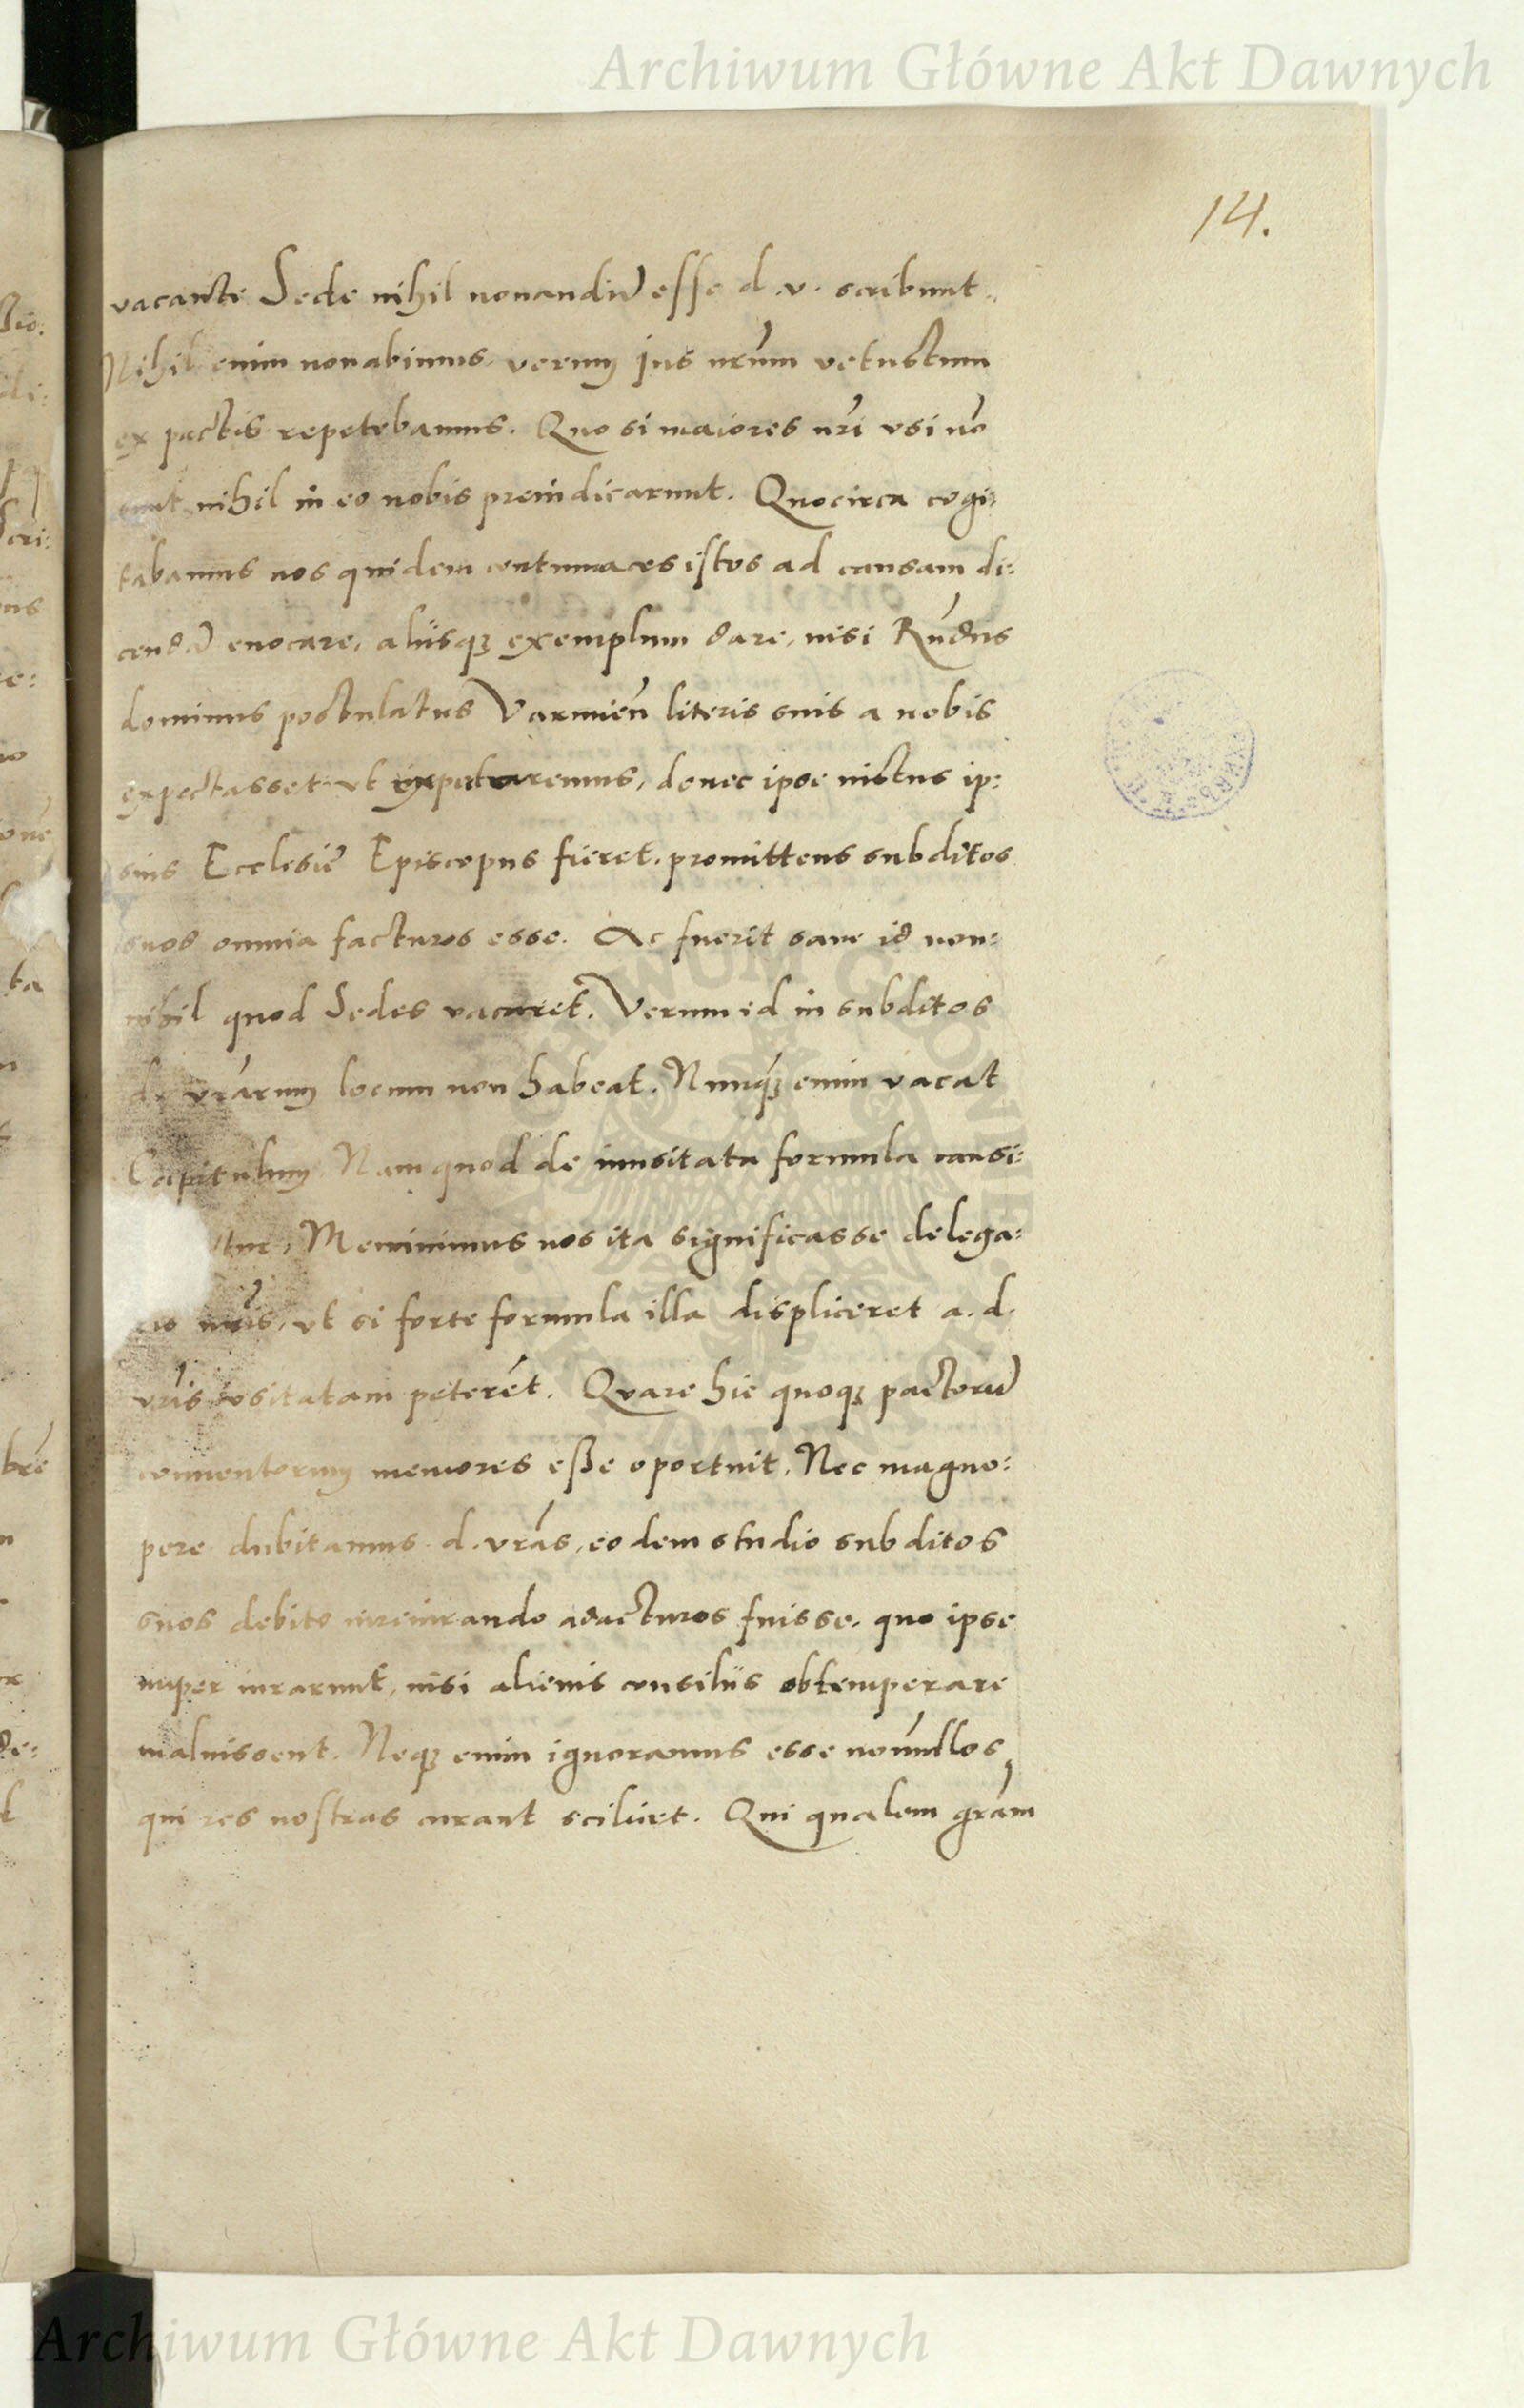 Archiwum Główne Akt Dawnych
14.
vacante Sede nihil nouandũ esse d. v. scribunt.
Nihil enim nouabimus, verum ius nr̃um vetustum
ex pactis repetebamus. Quo si maiores nr̃i vsi nõ
sunt nihil in eo nobis preiudicarunt. Quocirca cogi:
tabamus nos quidem contumaces istos ad causam di:
cendã euocare, aliisq; exemplum dare, nisi Rũdus
dominus postulatus Varmień literis suis a nobis
expectasset vt donec ipse iustus ip:
sius Ecclesię Episcopus fieret, promittens subditos
suos omnia facturos esse. Ac fuerit sane id non:
nihil quod Sedes vacaret. Verum id in subditos
d. vr̃arum locum non habeat. Nunq̃; enim vacat
Capitulum. Nam quod de inusitata formula causi:
tur, Meminimus nos ita significasse delega:
nr̃is, vt si forte formula illa displiceret a. d.
vr̃is vsitatam peterẽt. Quare hic quoq; pactorũ
conuentorum memores eße oportuit. Nec magno:
pere dubitamus d. vr̃as, eodem studio subditos
suos debito iureiurando adacturos fuisse, quo ipse
nuper iurarunt, nisi alienis consiliis obtemperare
maluissent. Neq; enim ignoramus esse nõnullos,
qui res nostras curant scilicet. Qui qualem gr̃am
Archiwum Główne Akt Dawnych